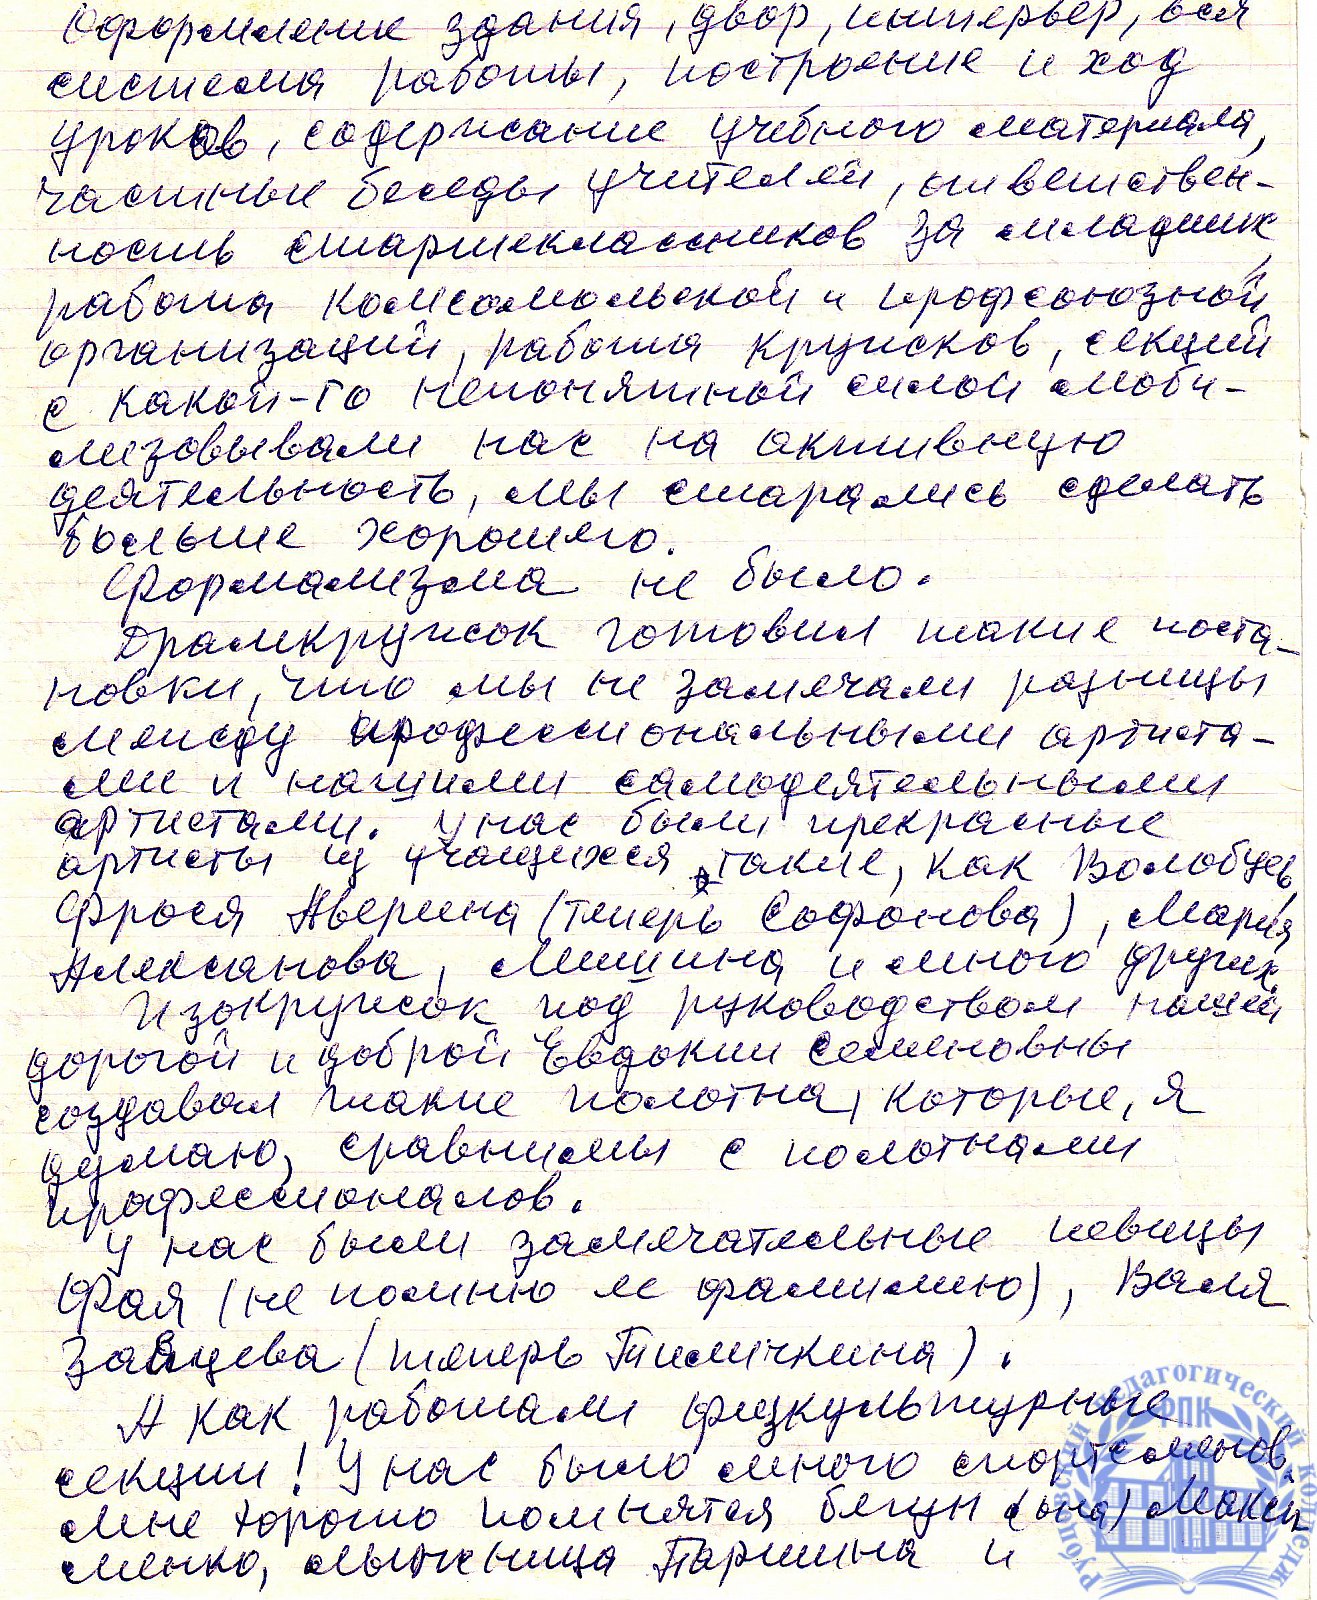 Оформление здания, двор, интерьер, вся
система работы, построение и ход
уроков, содержание учебного материала,
частные беседы учителей, ответствен-
ность старшеклассников за младших,
работа комсомольской и профсоюзной
организаций, работа кружков, секций
с какой-то непонятной силой моби-
лизовывали нас на активную
деятельность, мы старались сделать
больше хорошего.
Формализма не было.
Драмкружок готовил такие поста-
новки, что мы не замечали разницы
между профессиональными артиста-
ми и нашими самодеятельными
артистами. У нас были прекрасные
артисты из учащихся такие, как Волобуев,
Фрося Аверина (теперь Софонова), Мария
Алексанова, Мишина и много других.
Изокружок под руководством нашей
дорогой и доброй Евдокии Семеновны
создавал такие полотна, которые, я
думаю, сравнимы с полотнами
профессионалов.
У нас были замечательные певицы
Фая (не помню ее фамилию), Валя
Заяцева (теперь Тимичкина).
А как работали физкультурные
секции! У нас было много спортсменов.
Мне хорошо помнятся бегун (она) Макси
менко, лыжница Паршина и
Рубцовский педагогический колледж
РПК